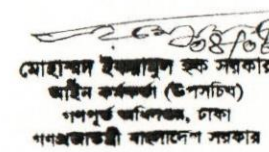 ০৪/০৪
মোহাম্মদ ইকরামুল হক সরকার
আইন কর্মকর্তা (উপসচিব)
গণপূর্ত অধিদপ্তর, ঢাকা
গণপ্রজাতন্ত্রী বাংলাদেশ সরকার